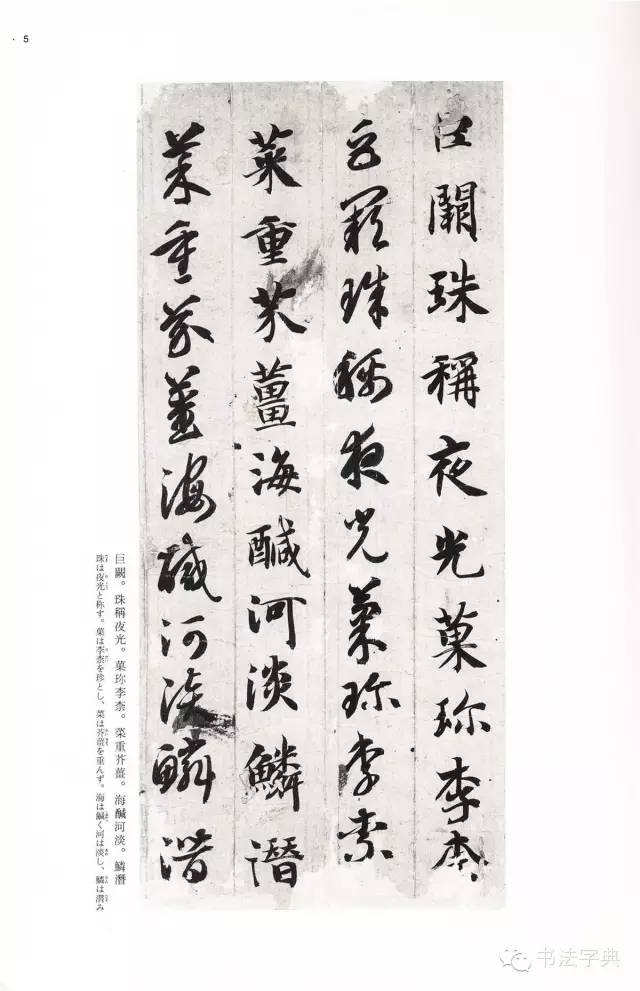 5
巨闕珠稱夜光菓珎李柰
巨闕珠稱夜光菓珎李柰
菜重芥薑海醎河淡鱗潛
菜重芥薑海醎河淡鱗潛
巨闕。珠稱夜光。菓珎李柰。菜重芥薑。海醎河淡。鱗潛
珠は夜光と称す。菓は李柰を珍とし、菜は芥薑を重んず。海は鹹く河は淡し、鱗は潛み
书法字典